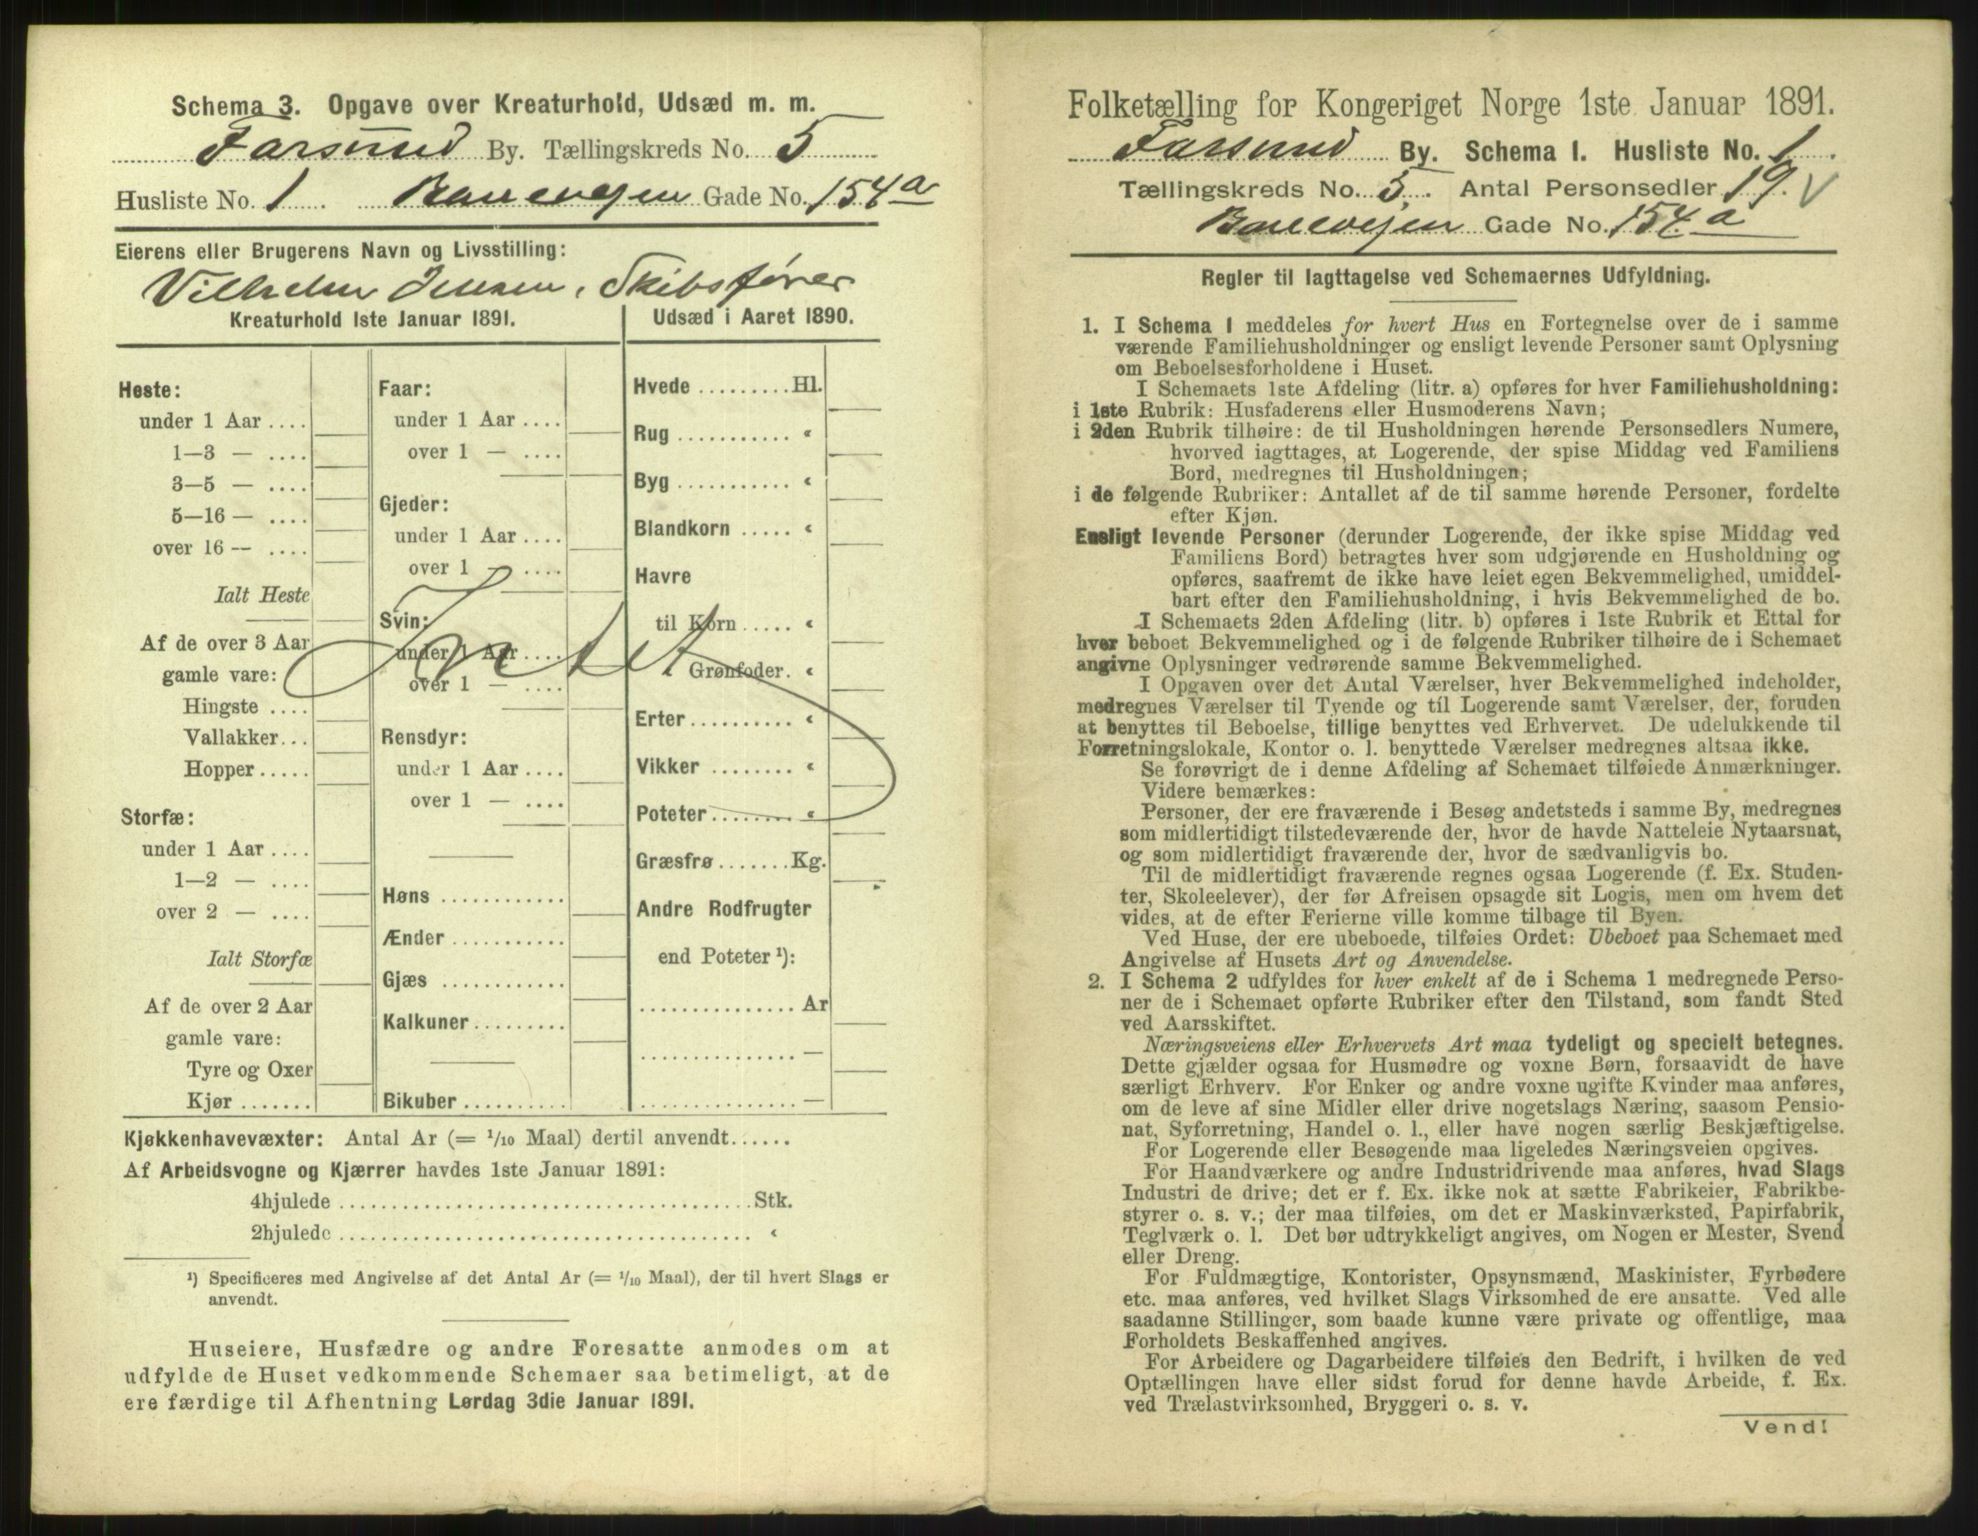 Schema 3. Opgave over Kreaturhold, Udsæd m. m.
Farsund By. Tællingskreds No. 5
Husliste No. 1 Banevejen Gade No. 154 a
Eierens eller Brugerens Navn og Livsstilling:
Vilhelm Jensen, Skibsfører
Kreaturhold 1ste Januar 1891.
Heste:
under 1 Aar ....
1—3 — ....
3—5 — ....
5—16 — ....
over 16 — ....
Ialt Heste
Af de over 3 Aar
gamle vare:
Hingste ....
Vallakker...
Hopper.....
Storfæ:
under 1 Aar ....
1—2 — ....
over 2 — ....
Ialt Storfæ
Af de over 2 Aar
gamle vare:
Tyre og Oxer
Kjør .......
Faar:
under 1 Aar ....
over 1 — ....
Gjeder:
under 1 Aar ....
over 1 — ....
Svin:
under 1 Aar ....
over 1 — ....
Intet
Rensdyr:
under 1 Aar ....
over 1 — ....
Høns ............
Ænder ...........
Gjæs ............
Kalkuner.........
Bikuber ..........
Udsæd i Aaret 1890.
Hvede .........Hl.
Rug ........... "
Byg ........... "
Blandkorn ..... "
Havre
til Korn ..... "
Grønfoder. "
Erter.......... "
Vikker ........ "
Poteter........ "
Græsfrø .......Kg.
Andre Rodfrugter
end Poteter ¹):
............... Ar
............... —
............... —
Kjøkkenhavevæxter: Antal Ar (= 1/10 Maal) dertil anvendt......
Af Arbeidsvogne og Kjærrer havdes 1ste Januar 1891:
4hjulede ......................................Stk.
2hjulede ...................................... "
¹) Specificeres med Angivelse af det Antal Ar (= 1/10 Maal), der til hvert Slags er
anvendt.
Huseiere, Husfædre og andre Foresatte anmodes om at
udfylde de Huset vedkommende Schemaer saa betimeligt, at de
ere færdige til Afhentning Lørdag 3die Januar 1891.
Folketælling for Kongeriget Norge 1ste Januar 1891.
Farsund By. Schema I. Husliste No. 1
Tællingskreds No. 5. Antal Personsedler 19. √
Banevejen Gade No. 154. a
Regler til Iagttagelse ved Schemaernes Udfyldning.
1. I Schema 1 meddeles for hvert Hus en Fortegnelse over de i samme
værende Familiehusholdninger og ensligt levende Personer samt Oplysning
om Beboelsesforholdene i Huset.
I Schemaets 1ste Afdeling (litr. a) opføres for hver Familiehusholdning:
i 1ste Rubrik: Husfaderens eller Husmoderens Navn;
i 2den Rubrik tilhøire: de til Husholdningen hørende Personsedlers Numere,
hvorved iagttages, at Logerende, der spise Middag ved Familiens
Bord, medregnes til Husholdningen;
i de følgende Rubriker: Antallet af de til samme hørende Personer, fordelte
efter Kjøn.
Ensligt levende Personer (derunder Logerende, der ikke spise Middag ved
Familiens Bord) betragtes hver som udgjørende en Husholdning og
opføres, saafremt de ikke have leiet egen Bekvemmelighed, umiddel-
bart efter den Familiehusholdning, i hvis Bekvemmelighed de bo.
I Schemaets 2den Afdeling (litr. b) opføres i 1ste Rubrik et Ettal for
hver beboet Bekvemmelighed og i de følgende Rubriker tilhøire de i Schemaet
angivne Oplysninger vedrørende samme Bekvemmelighed.
I Opgaven over det Antal Værelser, hver Bekvemmelighed indeholder,
medregnes Værelser til Tyende og til Logerende samt Værelser, der, foruden
at benyttes til Beboelse, tillige benyttes ved Erhvervet. De udelukkende til
Forretningslokale, Kontor o. l. benyttede Værelser medregnes altsaa ikke.
Se forøvrigt de i denne Afdeling af Schemaet tilføiede Anmærkninger.
Videre bemærkes:
Personer, der ere fraværende i Besøg andetsteds i samme By, medregnes
som midlertidigt tilstedeværende der, hvor de havde Natteleie Nytaarsnat,
og som midlertidigt fraværende der, hvor de sædvanligvis bo.
Til de midlertidigt fraværende regnes ogsaa Logerende (f. Ex. Studen-
ter, Skoleelever), der før Afreisen opsagde sit Logis, men om hvem det
vides, at de efter Ferierne ville komme tilbage til Byen.
Ved Huse, der ere ubeboede, tilføies Ordet: Ubeboet paa Schemaet med
Angivelse af Husets Art og Anvendelse.
2. I Schema 2 udfyldes for hver enkelt af de i Schema 1 medregnede Perso-
ner de i Schemaet opførte Rubriker efter den Tilstand, som fandt Sted
ved Aarsskiftet.
Næringsveiens eller Erhvervets Art maa tydeligt og specielt betegnes.
Dette gjælder ogsaa for Husmødre og voxne Børn, forsaavidt de have
særligt Erhverv. For Enker og andre voxne ugifte Kvinder maa anføres,
om de leve af sine Midler eller drive nogetslags Næring, saasom Pensio-
nat, Syforretning, Handel o. l., eller have nogen særlig Beskjæftigelse.
For Logerende eller Besøgende maa ligeledes Næringsveien opgives.
For Haandværkere og andre Industridrivende maa anføres, hvad Slags
Industri de drive; det er f. Ex. ikke nok at sætte Fabrikeier, Fabrikbe-
styrer o. s. v.; der maa tilføies, om det er Maskinværksted, Papirfabrik,
Teglværk o. l. Det bør udtrykkeligt angives, om Nogen er Mester, Svend
eller Dreng.
For Fuldmægtige, Kontorister, Opsynsmænd, Maskinister, Fyrbødere
etc. maa anføres, ved hvilket Slags Virksomhed de ere ansatte. Ved alle
saadanne Stillinger, som baade kunne være private og offentlige, maa
Forholdets Beskaffenhed angives.
For Arbeidere og Dagarbeidere tilføies den Bedrift, i hvilken de ved
Optællingen have eller sidst forud for denne havde Arbeide, f. Ex.
ved Trælastvirksomhed, Bryggeri o. s. v.
Vend!